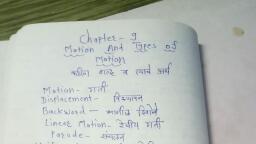 Chapter - 9
Motion And Types of
Motion
कठीण शब्द व त्याचे अर्थ
Motion - गती
Displacement - विस्थापन
Backword —
Linear Motion - रेषीय गती
Parade - संचलन